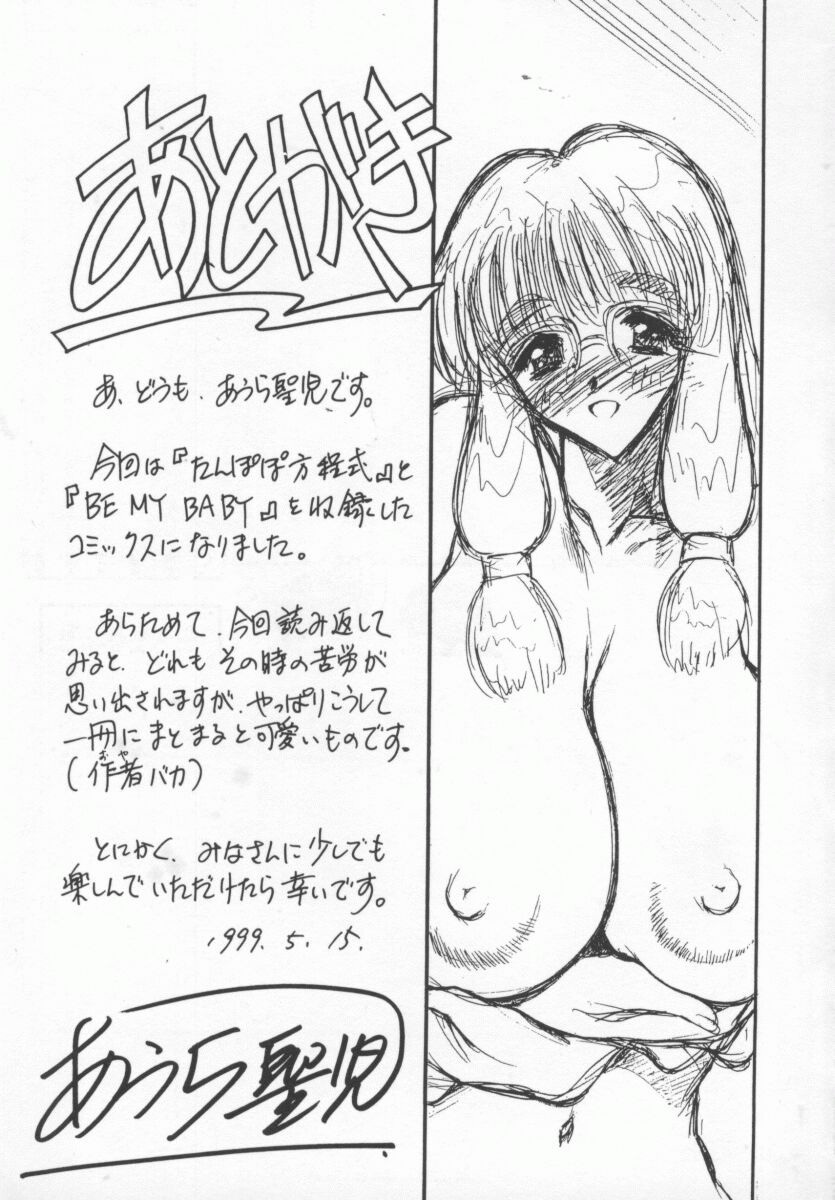 あとがき
あ、どうも、あうら聖児です。
今回は『たんぽぽ方程式』と
『BE MY BABY』を収録した
コミックスになりました。
あらためて、今回読み返して
みると、どれもその時の苦労が
思い出されますが、やっぱりこうして
一冊にまとまると可愛いものです。
(作者バカ)
おや
とにかく、みなさんに少しでも
楽しんでいただけたら幸いです。
1999. 5. 15.
あうら聖児